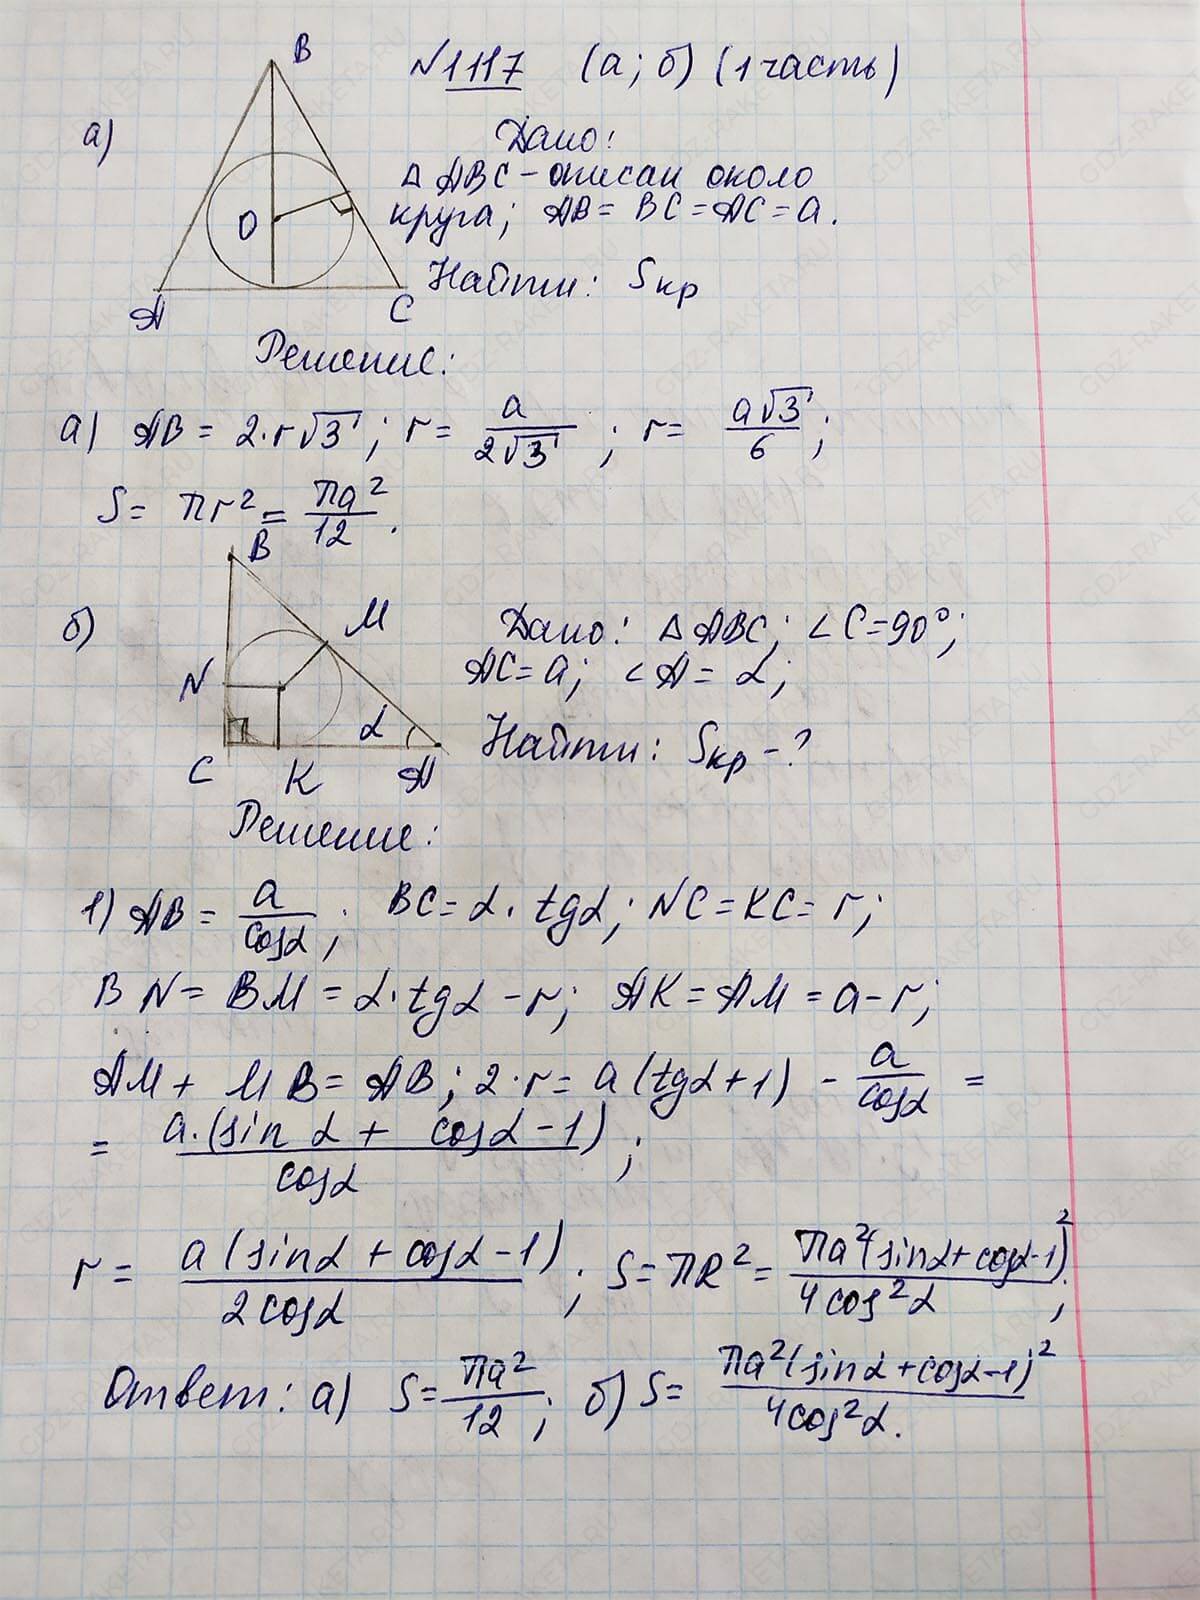 №1117 (а; б) (1 часть)
а)
B
O
A
C
Дано:
△ ABC - описан около
круга; AB = BC = AC = a.
Найти: Sкр
Решение:
а) AB = 2·r√3; r = a/(2√3); r = a√3/6;
S = πr² = πa²/12.
б)
B
M
N
α
C
K
A
Дано: △ ABC; ∠C=90°;
AC = a; ∠A = α;
Найти: Sкр - ?
Решение:
1) AB = a/cosα; BC = α·tgα; NC = KC = r;
BN = BM = α·tgα - r; AK = AM = a - r;
AM + MB = AB; 2·r = a(tgα+1) - a/cosα =
= a·(sin α + cosα - 1)/cosα;
r = a(sinα + cosα - 1)/2cosα; S = πR² = πa²(sinα + cosα - 1)²/4cos²α;
Ответ: а) S = πa²/12; б) S = πa²(sinα + cosα - 1)²/4cos²α.